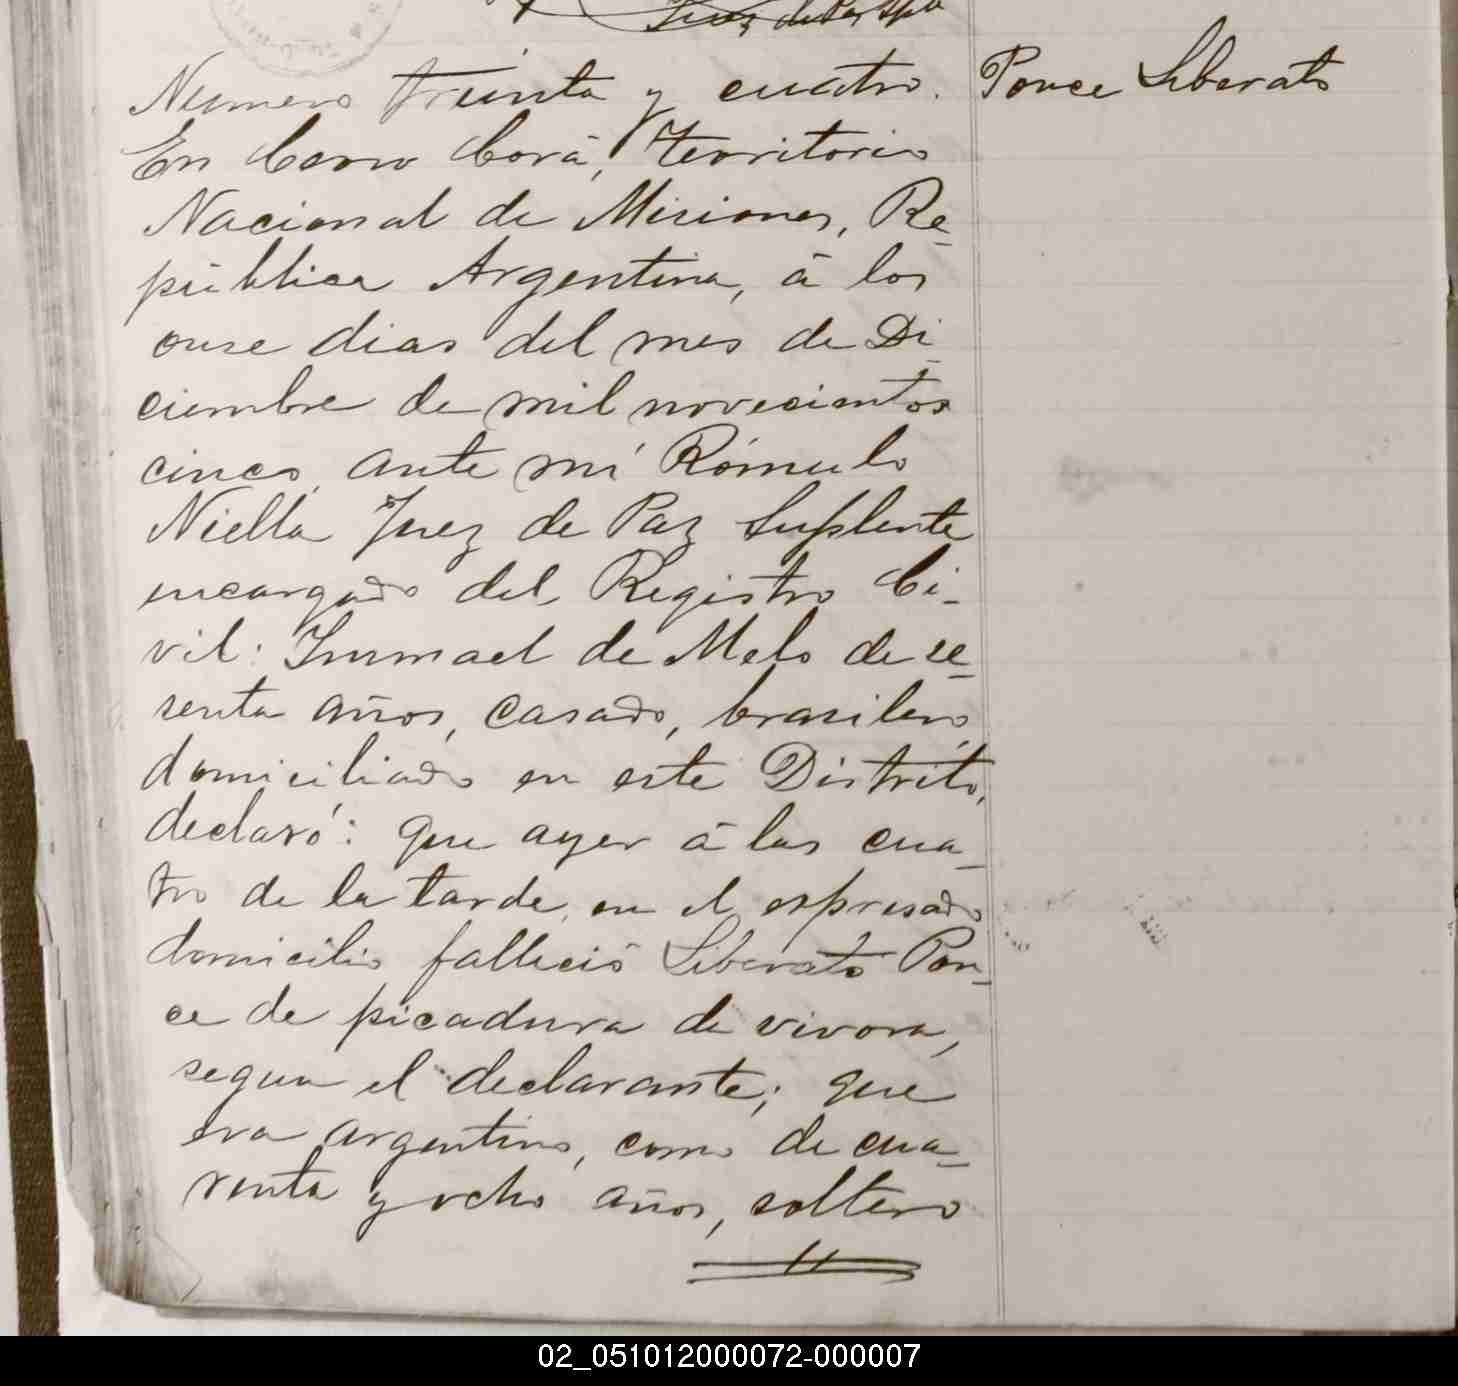 Juez de Paz Splte
Numero treinta y cuatro. Ponce Liberato
En Cerro Corá, Territorio
Nacional de Misiones, Re-
pública Argentina, á los
onse dias del mes de Di-
ciembre de mil novecientos
cinco, ante mí Rómulo
Niella Juez de Paz Suplente
encargado del Registro Ci-
vil: Immael de Melo de se-
senta años, casado, brasilero,
domiciliado en este Distrito,
declaró: que ayer á las cua-
tro de la tarde, en el espresado
domicilio falleció Liberato Pon-
ce de picadura de vivora,
segun el declarante; que
era argentino, como de cua-
renta y ocho años, soltero
02_051012000072-000007